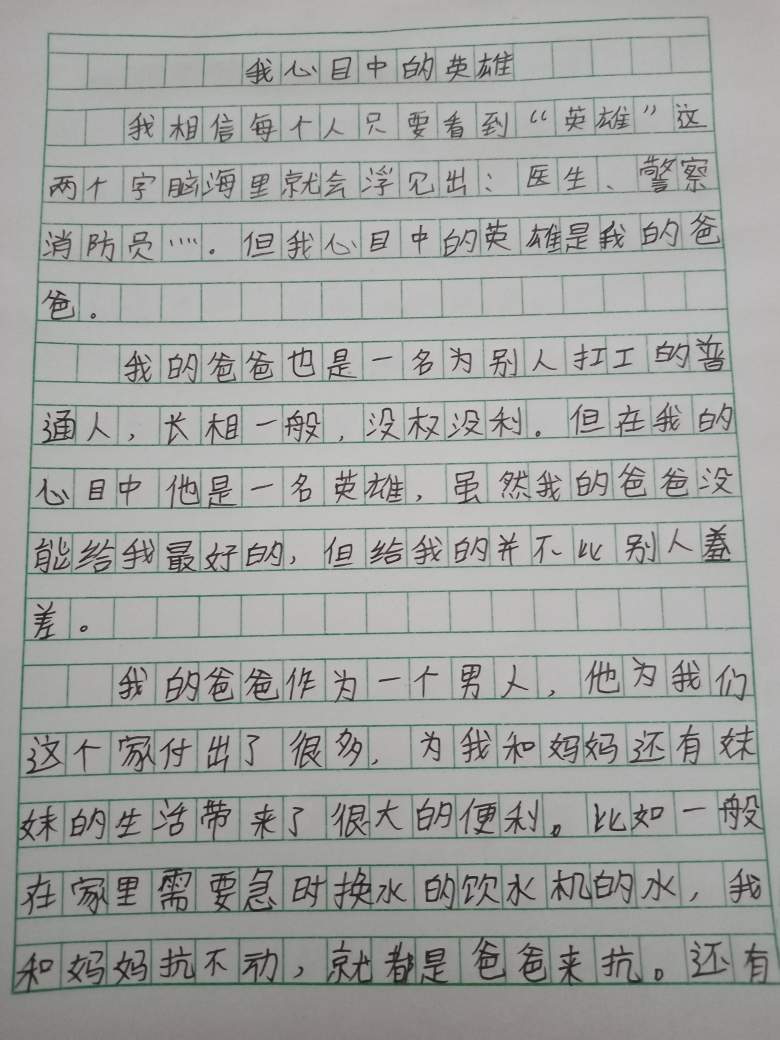 我心目中的英雄
我相信每个人只要看到“英雄”这
两个字脑海里就会浮见出：医生、警察
消防员……. 但我心目中的英雄是我的爸
爸。
我的爸爸也是一名为别人打工的普
通人，长相一般，没权没利。但在我的
心目中他是一名英雄，虽然我的爸爸没
能给我最好的，但给我的并不比别人羞
差。
我的爸爸作为一个男人，他为我们
这个家付出了很多，为我和妈妈还有妹
妹的生活带来了很大的便利。比如一般
在家里需要急时换水的饮水机的水，我
和妈妈抗不动，就都是爸爸来抗。还有